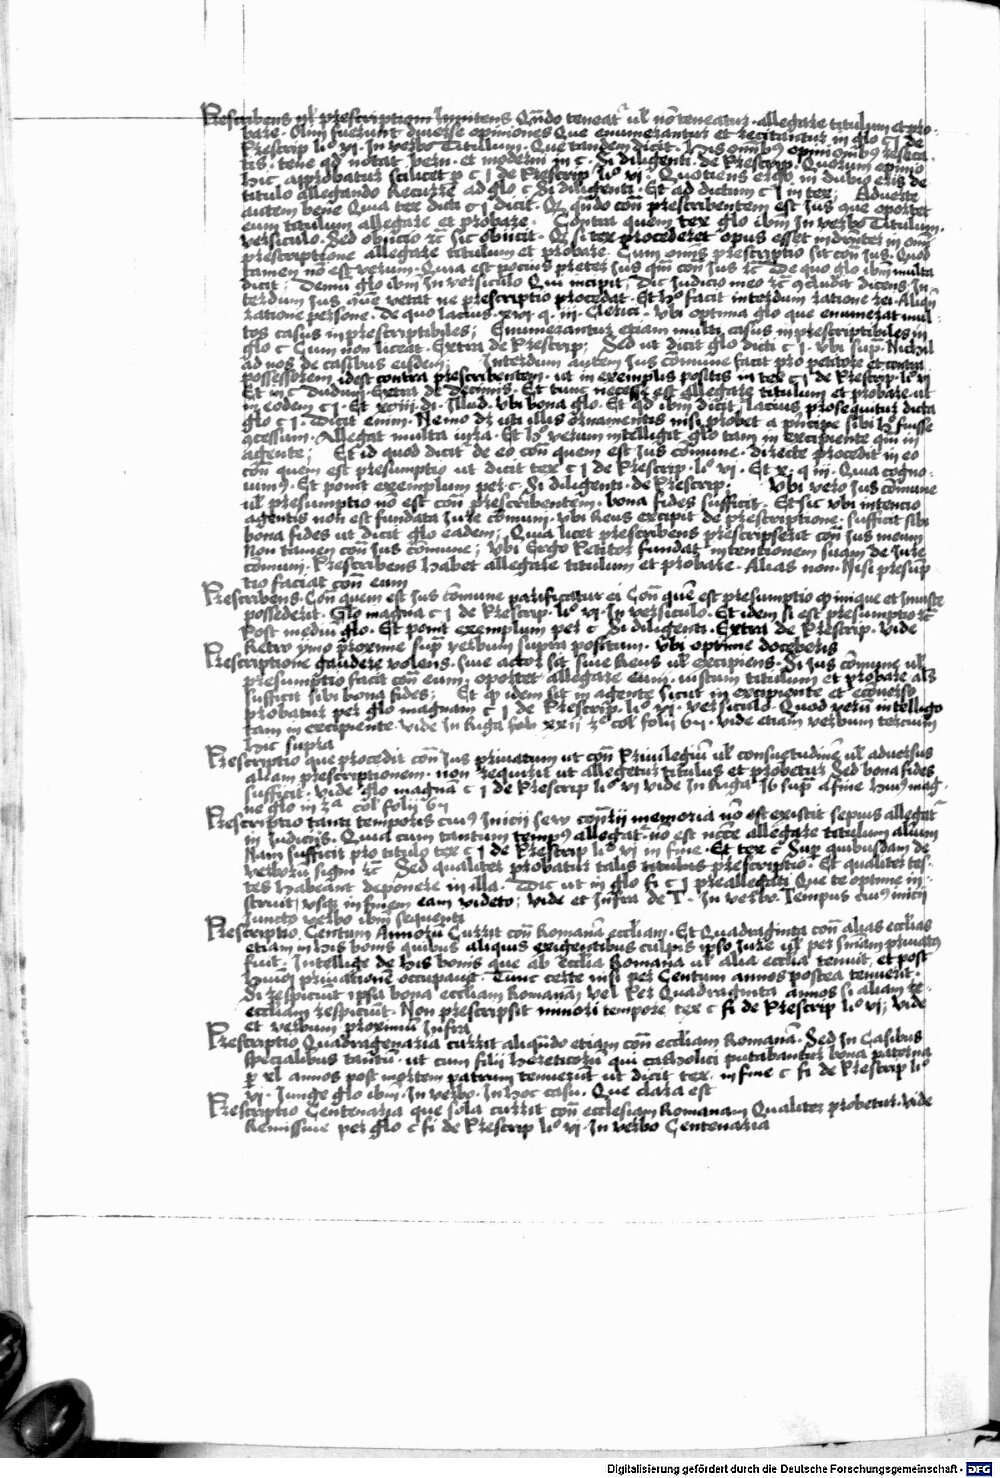 Prescribens vel prescriptioni Innitens Quando teneatur vel non teneatur allegare titulum et pro-
bare. Olim fuerunt diuerse opiniones Que enumerantur et recitantur in glo c j de
Prescrip li° vj. In verbo Titullum. Que tandem dicit. His omnibus opinionibus reseca-
tis. tene quod notat Bern. et moderni in c. Si diligenti. de Prescrip. Quorum opinio
hic approbatur scilicet p c j de Prescrip. li° vj. Quotiens ergo in dubio eris de
titulo allegando Recurre ad glo c Si diligenti. Et ad dictum c j in tex; Aduerte
autem bene Quia tex dicti c j dicit. Quod quando contra prescribentem est Jus que oportet
eum titulum allegare et probare. Contra quem tex glo ibidem In verbo Titulum.
versiculo. Sed obiicio etc sic obiicit. Quod si tex procederet opus esset indistincter in omni
prescriptione allegare titulum et probare. Cum omnis prescriptio sit contra Jus. Quod
tamen non est verum. Quia est pocius preter Jus quam contra Jus etc De quo glo ibidem multa
dicit; Demum glo ibidem In versiculo Qui incipit; Dic Iudicio meo etc concludit dicens In-
terdum Jus commune vetat ne prescriptio procedat. Et hoc facit interdum ratione rei. Aliquando
ratione persone. De quo lacius. xvi q. iij. Clerici. Vbi optima glo que enumerat mul-
tos casus inprescriptibiles; Enumerantur etiam multi casus inprescriptibiles in
glo c Cum non liceat. Extra de Prescrip; Sed ut dicit glo dicti c j. Vbi supra. Nichil
ad nos de casibus eisdem; Interdum autem Jus commune facit pro petitore et contra
possessorem idest contra prescribentem. ut in exemplis positis in tex c j de Prescrip li° vj
Et in c Dudum. Extra de Decimis. Et tunc necesse est allegare titulum et probare. ut
in eodem c j. Et xviij. di. Illud. Vbi bona glo. Et quod ibidem dicit, lacius prosequitur dicta
glo c j. Dicit enim. Nemo debet uti illis ornamentis nisi probet a principe sibi hoc fuisse
concessum. Allegat multa iura. Et hoc verum intelligit glo tam in excipiente quam in
agente; Et id quod dicitur de eo contra quem est Jus commune. directe procedit in eo
contra quem est presumptio ut dicit tex c j de Prescrip. li° vj. Et x. q iij. Quia cogno-
uimus. Et ponit exemplum per c. Si diligenti. de Prescrip. Vbi vero Jus commune
vel presumptio non est contra prescribentem. bona fides sufficit. Et sic ubi intencio
agentis non est fundata Jure communi. Vbi Reus excipit de prescriptione. sufficit sibi
bona fides ut dicit glo eadem; Quia licet prescribens prescripserit contra Jus meum
Non tamen contra Jus commune; Vbi Ergo Petitor fundat intentionem suam de Jure
communi. Prescribens habet allegare titulum et probare. Alias non. Nisi presump-
tio faciat contra eum
Prescribens. Contra quem est Jus commune parificatur ei Contra quem est presumptio quod inique et Iniuste
possederit. Glo magna c j de Prescrip. li° vj. In versiculo. Et idem si est presumptio etc
Post medium glo. Et ponit exemplum per c Si diligenti. Extra de Prescrip. Vide
Retro ymo proxime supra verbum supra positum. Vbi optime doceberis
Prescriptione gaudere volens. siue actor sit siue Reus vel excipiens. Si Jus commune vel
presumptio facit contra eum, oportet allegare eum. iustum titulum et probare alias
sufficit sibi bona fides; Et quod idem sit in agente sicut in excipiente et econverso
probatur per glo magnam c j de Prescrip. li° vj. versiculo. Quod verum intelligo
tam in excipiente. Vide In Ruga xxij col folij. vide etiam verbum tercium
hic supra
Prescriptio que procedit contra Jus priuatum ut contra Priuilegium vel consuetudinem vel aduersus
aliam prescriptionem. non requirit ut allegetur titulus et probetur Sed bona fides
sufficit. Vide glo magnam c j de Prescrip li° vj vide In Ruga supra a fine huius mag-
ne glo in col folij
Prescriptio tanti temporis cuius Inicij seu contrarij memoria non est existit sepius allegatur
in Iudiciis. Quia cum tantum tempus allegat. non est necesse allegare titulum alium
Nam sufficit pro titulo tex c j de Prescrip li° vj in fine. Et tex c Super quibusdam de
verborum signi etc Sed qualiter probatur talis titulus prescriptionis. Et qualiter tes-
tes habeant deponere in illa. Dic ut in glo fi c j preallegati Que te optime in-
struit, usque in finem eam videto; vide et Infra de T. In verbo. Tempus cuius inicij
Iuncto verbo ibidem sequenti
Prescriptio. Centum Annorum Currit contra Romanam ecclesiam. Et Quadraginta contra alias ecclesias
etiam in his bonis quibus aliquis exigentibus culpis ipso Jure vel per sententiam priuatus
fuit. Intellige de his bonis que ab Ecclesia Romana vel alia ecclesia tenuit, et post
huiusmodi priuationem occupauit. Tunc certe nisi per Centum annos postea tenuerit.
Si respiciunt ipsa bona ecclesiam Romanam, vel Per Quadraginta annos si aliam re-
ecclesiam respiciunt. Non prescripsit minori tempore tex c fi de Prescrip li° vj; Vide
et verbum proximum Infra
Prescriptio Quadragenaria currit aliquando etiam contra ecclesiam Romanam. Sed In Casibus
specialibus tantum. ut cum filij hereticorum qui catholici putabantur bona paterna
per xl annos post mortem patrum tenuerunt ut dicit tex. in fine c fi de Prescrip li°
vj. Iunge glo ibidem. In verbo. In hoc casu. Que clara est
Prescriptio Centenaria que sola currit contra ecclesiam Romanam Qualiter probetur. Vide
Remissiue per glo c fi de Prescrip li° vj. In verbo Centenaria
Digitalisierung gefördert durch die Deutsche Forschungsgemeinschaft - DFG